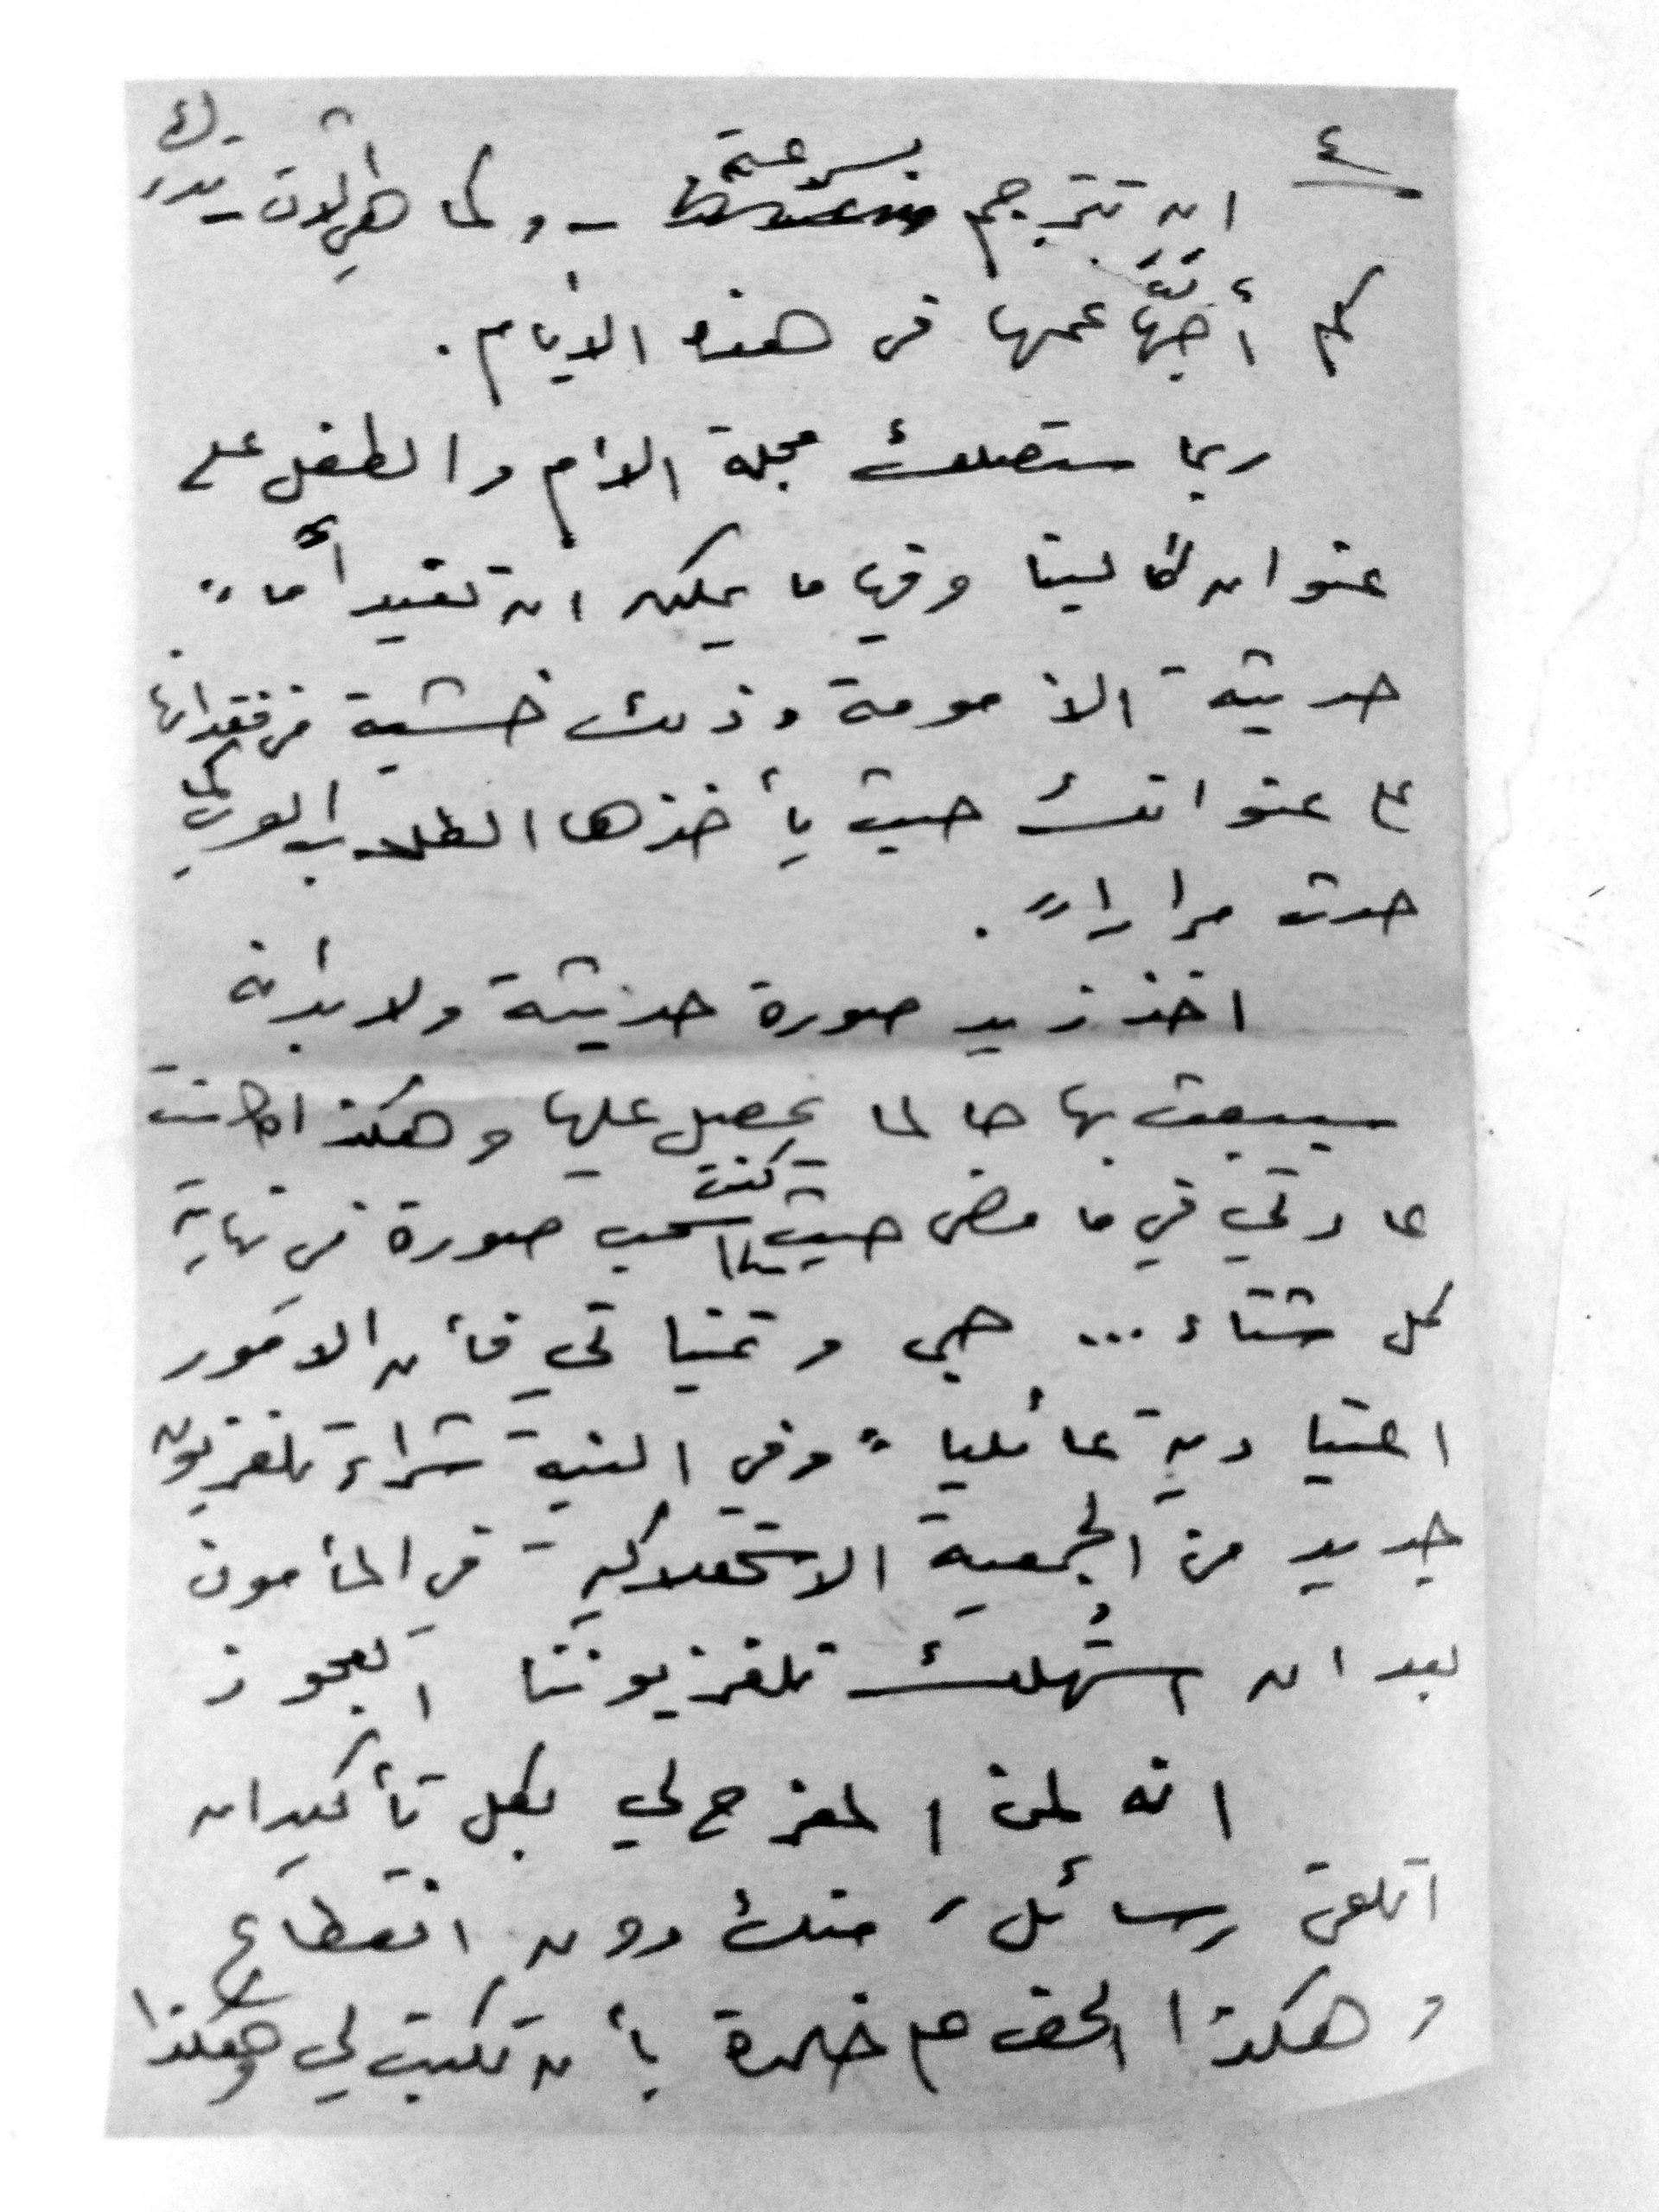 ٤
ان تترجم بسرعة - ولما هي الآن تدرك
كم أحبَّتها عمها في هذه الأيام.
ربما ستصلك مجلة الأم والطفل على
عنوان كالينا وفيها ما يمكن ان تفيد أُماً
حديثة الأمومة وذلك خشية من فقدانها
على عنوانك حيث يأخذها الطلاب العرب كما
حدث مراراً.
اخذ زيد صورة حديثة ولابد أنه
سيبعث بها حالما يحصل عليها وهكذا كانت
عادتي في ما مضى حيث كنت اسحب صورة في نهاية
كل شتاء ... حبي وتمنياتي فأن الأمور
اعتيادية عائلياً وفي النية شراء تلفزيون
جديد من الجمعية الاستهلاكية في المأمون
بعد ان استُهلك تلفزيوننا العجوز
انه لمن المفرح لي بكل تأكيد ان
اتلقى رسائل منك دون انقطاع
وهكذا الححت على بأن تكتب لي وهكذا